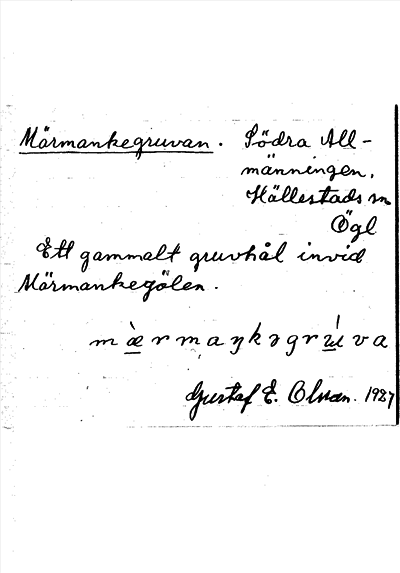 Mörmankegruvan. Södra All-
männingen,
Hällestads sn
Ögl
Ett gammalt gruvhål invid
Mörmankegölen.
mæ̀rmaŋkəgrúva
Gustaf E. Olsson. 1927